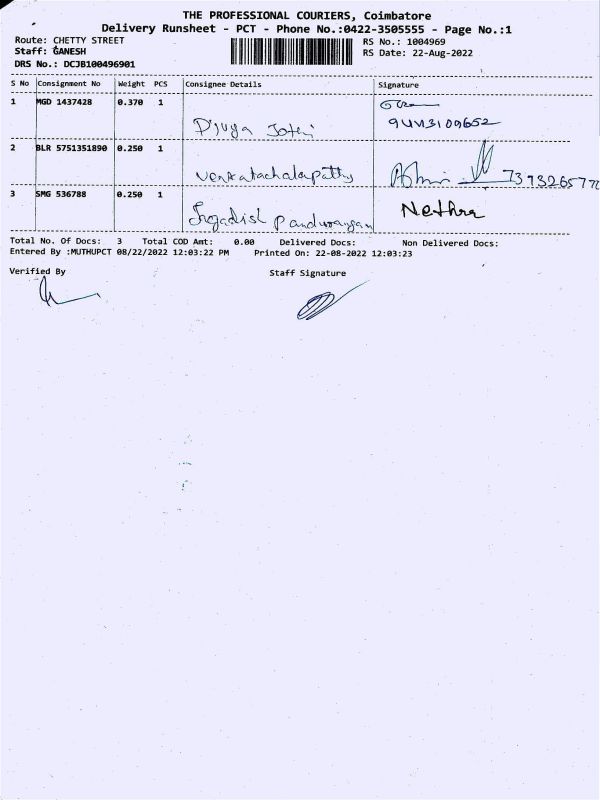 THE PROFESSIONAL COURIERS, Coimbatore
Delivery Runsheet - PCT - Phone No.:0422-3505555 - Page No.:1
Route: CHETTY STREET
Staff: GANESH
DRS No.: DCJB100496901
RS No.: 1004969
RS Date: 22-Aug-2022
S No Consignment No Weight PCS Consignee Details Signature
1 MGD 1437428 0.370 1
Divya Jothi
2 BLR 5751351890 0.250 1
Venkatachalapathy
3 SMG 536788 0.250 1 Nethra
Jegadish Pandurangan
Total No. Of Docs: 3 Total COD Amt: 0.00 Delivered Docs: Non Delivered Docs:
Entered By :MUTHUPCT 08/22/2022 12:03:22 PM Printed On: 22-08-2022 12:03:23
Verified By Staff Signature